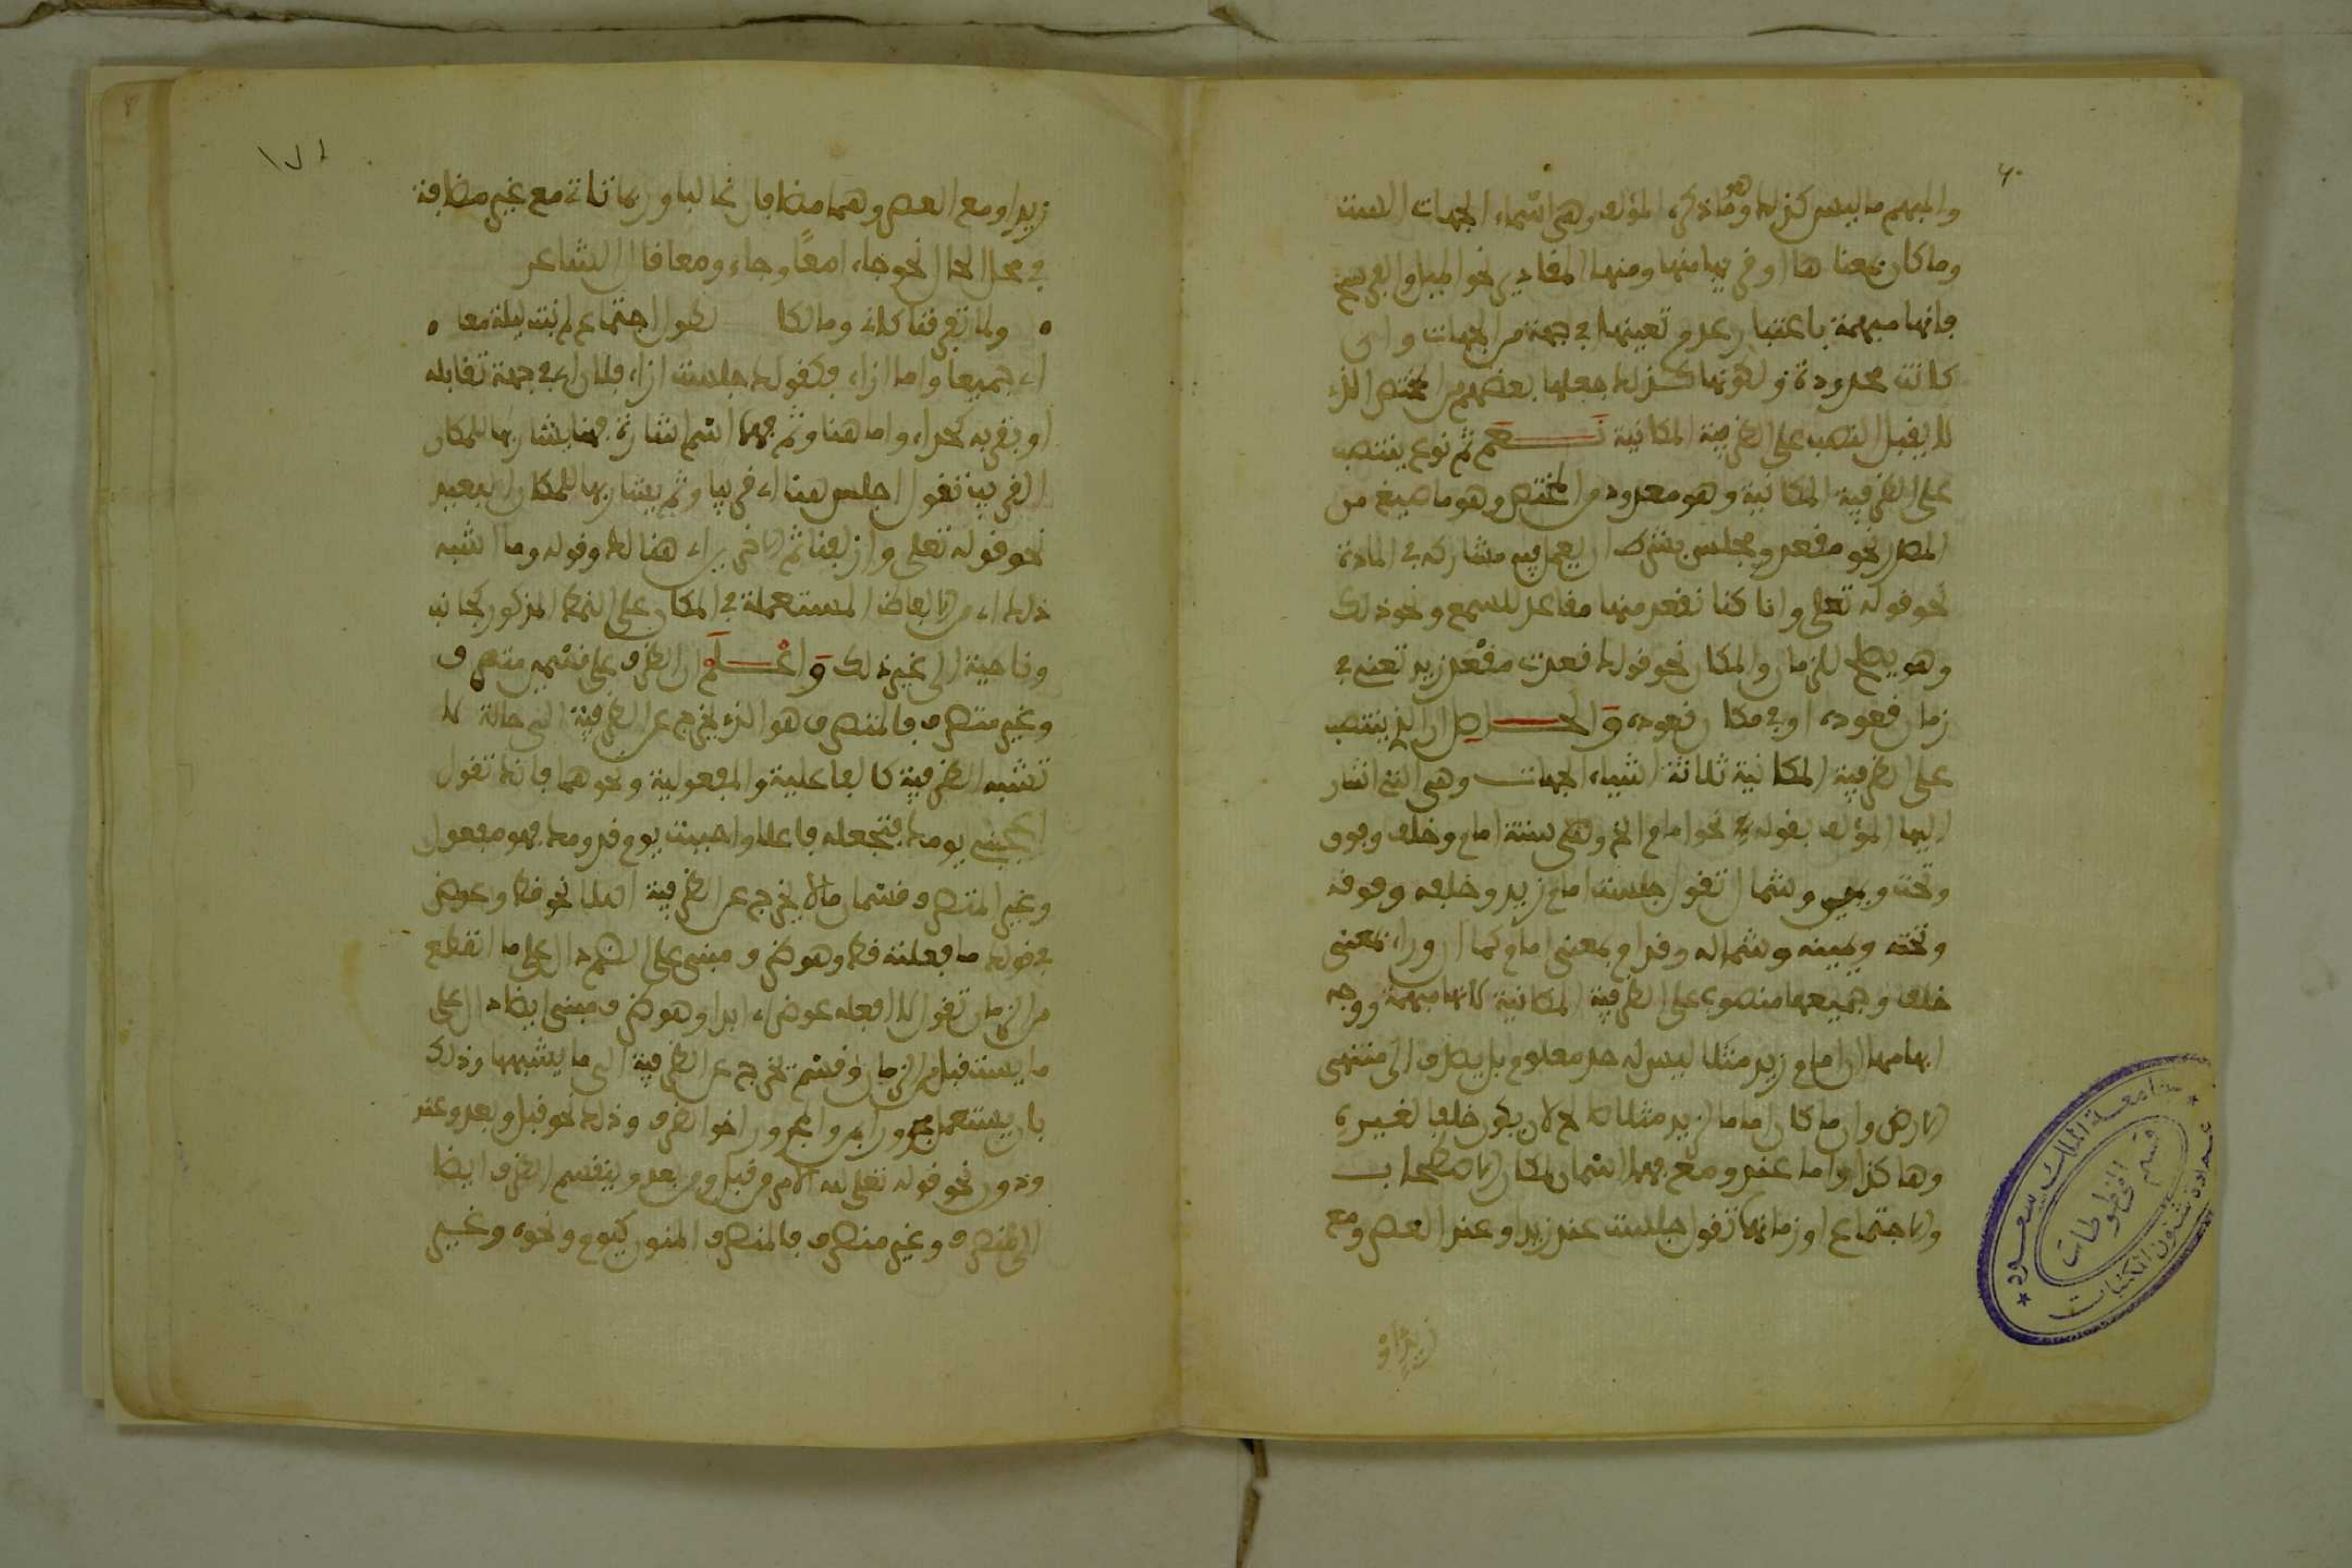 والمبهم ما ليس كذلك وهو ما ذكره المؤلف وهي اسماء الجهات الست
وما كان بمعناها او قريبا منها ومنها المقادير نحو الميل والفرسخ
فانها مبهمة باعتبار عدم تعينها في جهة من الجهات وان
كانت محدودة ولكونها كذلك جعلها بعضهم من المختص الذي
لا يقبل النصب على الظرفية المكانية نعم ثم نوع ينتصب
على الظرفية المكانية وهو معدود من المختص وهو ما صيغ من
المصدر نحو مقعد ومجلس بشرط ان يعمل فيه مشاركه في المادة
نحو قوله تعلى وانا كنا نقعد منها مقاعد للسمع ونحو ذلك
وهو يصلح للزمان والمكان نحو قولك قعدت مقعد زيد تعني في
زمان قعوده او في مكان قعوده والحاصل ان الذي ينتصب
على الظرفية المكانية ثلاثة اشياء الجهات وهي التي اشار
اليها المؤلف بقوله نحو امام الخ وهي ستة امام وخلف وفوق
وتحت ويمين وشمال تقول جلست امام زيد وخلفه وفوقه
وتحته ويمينه وشماله وقدام بمعنى امام كما ان وراء بمعنى
خلف وجميعها منصوب على الظرفية المكانية لانها مبهمة ووجه
ابهامها ان امام زيد مثلا ليس له حد معلوم بل يصدق الى منتهى
الارض وان ما كان اماما لزيد مثلا صالح لان يكون خلفا لغيره
وهاكذا واما عند ومع فهما اسمان لمكان الاصطحاب
والاجتماع او زمانهما تقول جلست عند زيد او عند العصر ومع
زيد او
زيد او مع العصر وهما مضافان غالبا وربما تاتي مع غير مضافة
في محل الحال نحو جاءا معا وجاءو معا قال الشاعر
ولما تفرقنا كأني ومالكا لطول اجتماع لم نبت ليلة معا
اي جميعا واما ازاء فكقولك جلست ازاء فلان اي في جهة تقابله
او بقربه كحذاء واما هنا وثم فهما اسما اشارة فهنا يشار بها للمكان
القريب تقول اجلس هنا اي قريبا وثم يشار بها للمكان البعيد
نحو قوله تعلى وازلفنا ثم الاخرين اي هنالك وقوله وما اشبه
ذلك اي من الالفاظ المستعملة في المكان على النمط المذكور كجانب
وناحية الى غير ذلك واعلم ان الظرف على قسمين متصرف
وغير متصرف فالمتصرف هو الذي يخرج عن الظرفية الى حالة لا
تشبه الظرفية كالفاعلية والمفعولية ونحوهما فانك تقول
اعجبني يومك فتجعله فاعلا واحببت يوم قدومك فهو مفعول
وغير المتصرف قسمان ما لا يخرج عن الظرفية اصلا نحو قط وعوض
في قولك ما فعلته قط وهو ظرف مبني على الضم دال على ما انقطع
من الزمان تقول لا افعله عوض اي ابدا وهو ظرف مبني ايضا دال على
ما يستقبل من الزمان وقسم يخرج عن الظرفية الى ما يشبهها وذلك
بان يستعمل مجرورا بمن والمجرور اخو الظرف وذلك نحو قبل وبعد وعند
ودون نحو قوله تعلى لله الامر من قبل ومن بعد وينقسم الظرف ايضا
الى منصرف وغير منصرف فالمنصرف المنون كيوم ونحوه وغير
جامعة الملك سعود
عمادة شؤون المكتبات
قسم المخطوطات